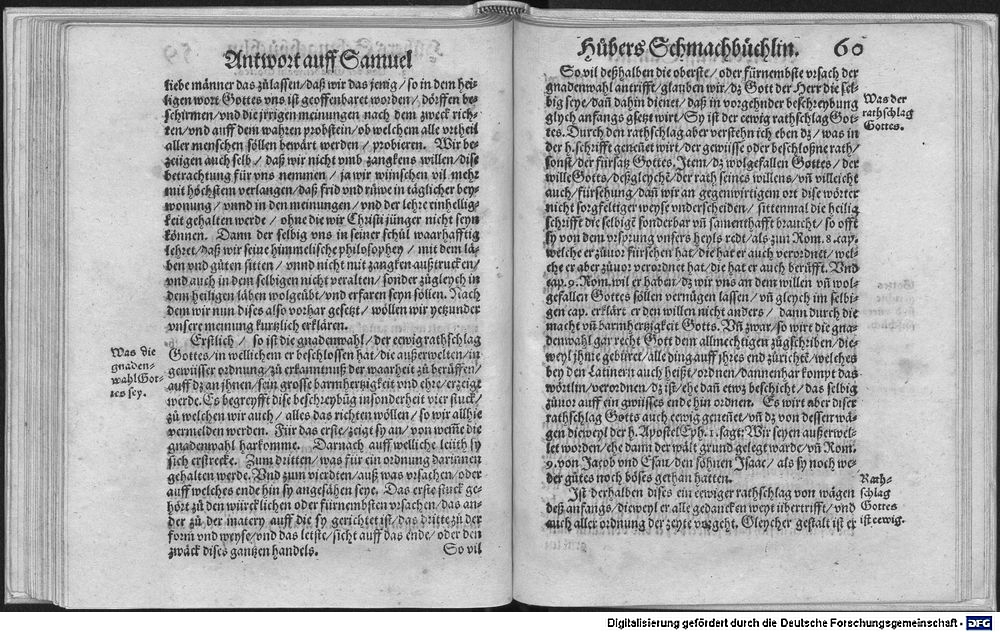 Antwort auff Samuel
liebe männer das zůlassen/ daß wir das jenig/ so in dem hei-
ligen wort Gottes vns ist geoffenbaret worden/ dörffen be-
schirmen/ vnd die jrrigen meinungen nach dem zweck rich-
ten/ vnd auff dem wahren probstein/ ob welchem alle vrtheil
aller menschen söllen bewärt werden/ probieren. Wir be-
zeügen auch selb/ daß wir nicht vmb zanckens willen/ dise
betrachtung für vns nemmen/ ja wir wünschen vil mehr
mit höchstem verlangen/ daß frid vnd růwe in täglicher bey-
wonung/ vnnd in den meinungen/ vnd der lehre einhellig-
keit gehalten werde/ ohne die wir Christi jünger nicht seyn
können. Dann der selbig vns in seiner schůl waarhafftig
lehret/ daß wir seine himmelische philosophey/ mit dem lä-
ben vnd gůten sitten/ vnnd nicht mit zancken außtrucken/
vnd auch in dem selbigen nicht veralten/ sonder zůgleych in
dem heiligen läben wolgeübt/ vnd erfaren seyn söllen. Nach
dem wir nun dises also vorhar gesetzt/ wöllen wir yetzunder
vnsere meinung kurtzlich erklären.
Erstlich/ so ist die gnadenwahl/ der eewig rathschlag
Was die
gnaden-
wahl Got-
tes sey.
Gottes/ in wellichem er beschlossen hat/ die außerwelten/ in
gewüsser ordnung/ zů erkanntnuß der waarheit zů berüffen/
auff dz an jhnen/ sein grosse barmhertzigkeit vnd ehre/ erzeigt
werde. Es begreyfft dise beschreybūg insonderheit vier stuck/
zů welchen wir auch/ alles das richten wöllen/ so wir allhie
vermelden werden. Für das erste/ zeigt sy an/ von wem̄e die
gnadenwahl harkomme. Darnach auff welliche leüth sy
sich erstrecke. Zum dritten/ was für ein ordnung darinnen
gehalten werde. Vnd zum vierdten/ auß was vrsachen/ oder
auff welches ende hin sy angesähen seye. Das erste stuck ge-
hört zů den würcklichen oder fürnembsten vrsachen/ das an-
der zů der matery auff die sy gerichtet ist/ das dritte zů der
form vnd weyse/ vnd das letste/ sicht auff das ende/ oder den
zwäck dises gantzen handels.
So vil
Hůbers Schmachbüchlin. 60
So vil deßhalben die oberste/ oder fürnembste vrsach der
gnadenwahl antrifft/ glauben wir/ dz Gott der Herr die sel-
big seye/ dañ dahin dienet/ daß in vorgehnder beschreybung
glych anfangs gsetzt wirt/ Sy ist der eewig rathschlag Got-
tes. Durch den rathschlag aber verstehn ich eben dz/ was in
der h. schrifft geneñet wirt/ der gewüsse oder beschloßne rath/
sonst/ der fürsatz Gottes. Item/ dz wolgefallen Gottes/ der
wille Gotts/ deßgleychē/ der rath seines willens/ vñ villeicht
auch/ fürsehung/ dañ wir an gegenwirtigem ort dise wörter
nicht sorgfeltiger weyse vnderscheiden/ sittenmal die heilig
schrifft die selbigē sonderbar vñ samenthafft braucht/ so offt
sy von dem vrsprung vnsers heyls redt/ als zun Rom. 8. cap.
welche er zůuor fürsehen hat/ die hat er auch verordnet/ wel-
che er aber zůuor verordnet hat/ die hat er auch berüfft. Vnd
cap. 9. Rom. wil er haben/ dz wir vns an dem willen vñ wol-
gefallen Gottes söllen vernügen lassen/ vñ gleych im selbi-
gen cap. erklärt er den willen nicht anders/ dann durch die
macht vñ barmhertzigkeit Gotts. Vñ zwar/ so wirt die gna-
denwahl gar recht Gott dem allmechtigen zůgschriben/ die-
weyl jhme gebüret/ alle ding auff jhres end zůrichtē/ welches
bey den Latinern auch heißt/ ordnen/ dannenhar kompt das
wörtlin/ verordnen/ dz ist/ ehe dañ etwz beschicht/ das selbig
zůuor auff ein gwüsses ende hin ordnen. Es wirt aber diser
rathschlag Gotts auch eewig geneñet/ vñ dz von dessen wä-
gen dieweyl der h. Apostel Eph. 1. sagt: Wir seyen außerwel-
let worden/ ehe dann der wält grund gelegt warde/ vñ Rom.
9. von Jacob vnd Esau/ den söhnen Isaac/ als sy noch we-
der gůtes noch böses gethan hatten.
Ist derhalben dises ein eewiger rathschlag von wägen
deß anfangs/ dieweyl er alle gedancken weyt übertrifft/ vnd
auch aller ordnung der zeyte vorgeht. Gleycher gestalt ist er
Was der
rathschlag
Gottes.
Rath-
schlag
Gottes
ist eewig.
Digitalisierung gefördert durch die Deutsche Forschungsgemeinschaft - DFG